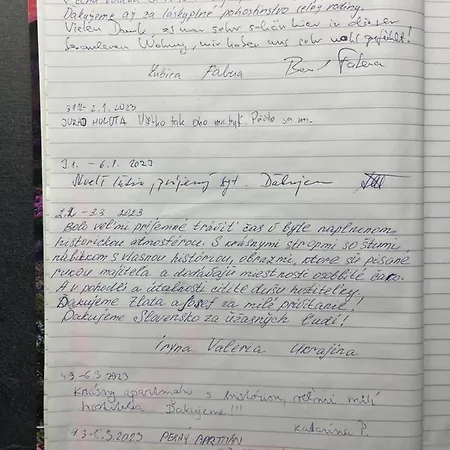 Ďakujeme aj za láskyplné pohostinstvo celej rodiny.
Vielen Dank, es war sehr schön hier in dieser
Wohnung, wir haben uns sehr wohl gefühlt!
Ľubica Fabera
2.1.2023
Všetko tak ako má byť. Páčilo sa mi.
3.1. - 6.1. 2023
príjemný byt. Ďakujem
2.2 - 3.3 2023
Bolo veľmi príjemné tráviť čas v byte naplnenom
historickou atmosférou. S krásnymi stropmi so štuami,
nábytkom s vlasnou históriou, obrazmi, ktoré sú písané
rukou majiteľa a dodávajú miestnosti osobité čaro.
A v pohode a útulnosti cítite dušu hostiteľky.
Ďakujeme Zlata a Josef za milé privítanie!
Ďakujeme Slovensko za úžasných ľudí!
Iryna Valeria Ukrajina
4.3 - 6.3 2023
Krásny apartmán s históriou, veľmi milí
Ďakujeme!!!
Katarína P.
2023 PEKNÝ APARTMÁN